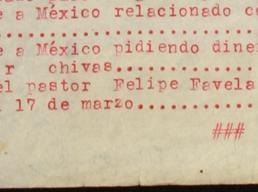 e a México relacionado c
..............................
e a México pidiendo dine
r chivas....................
el pastor Felipe Favela
17 de marzo...............
###